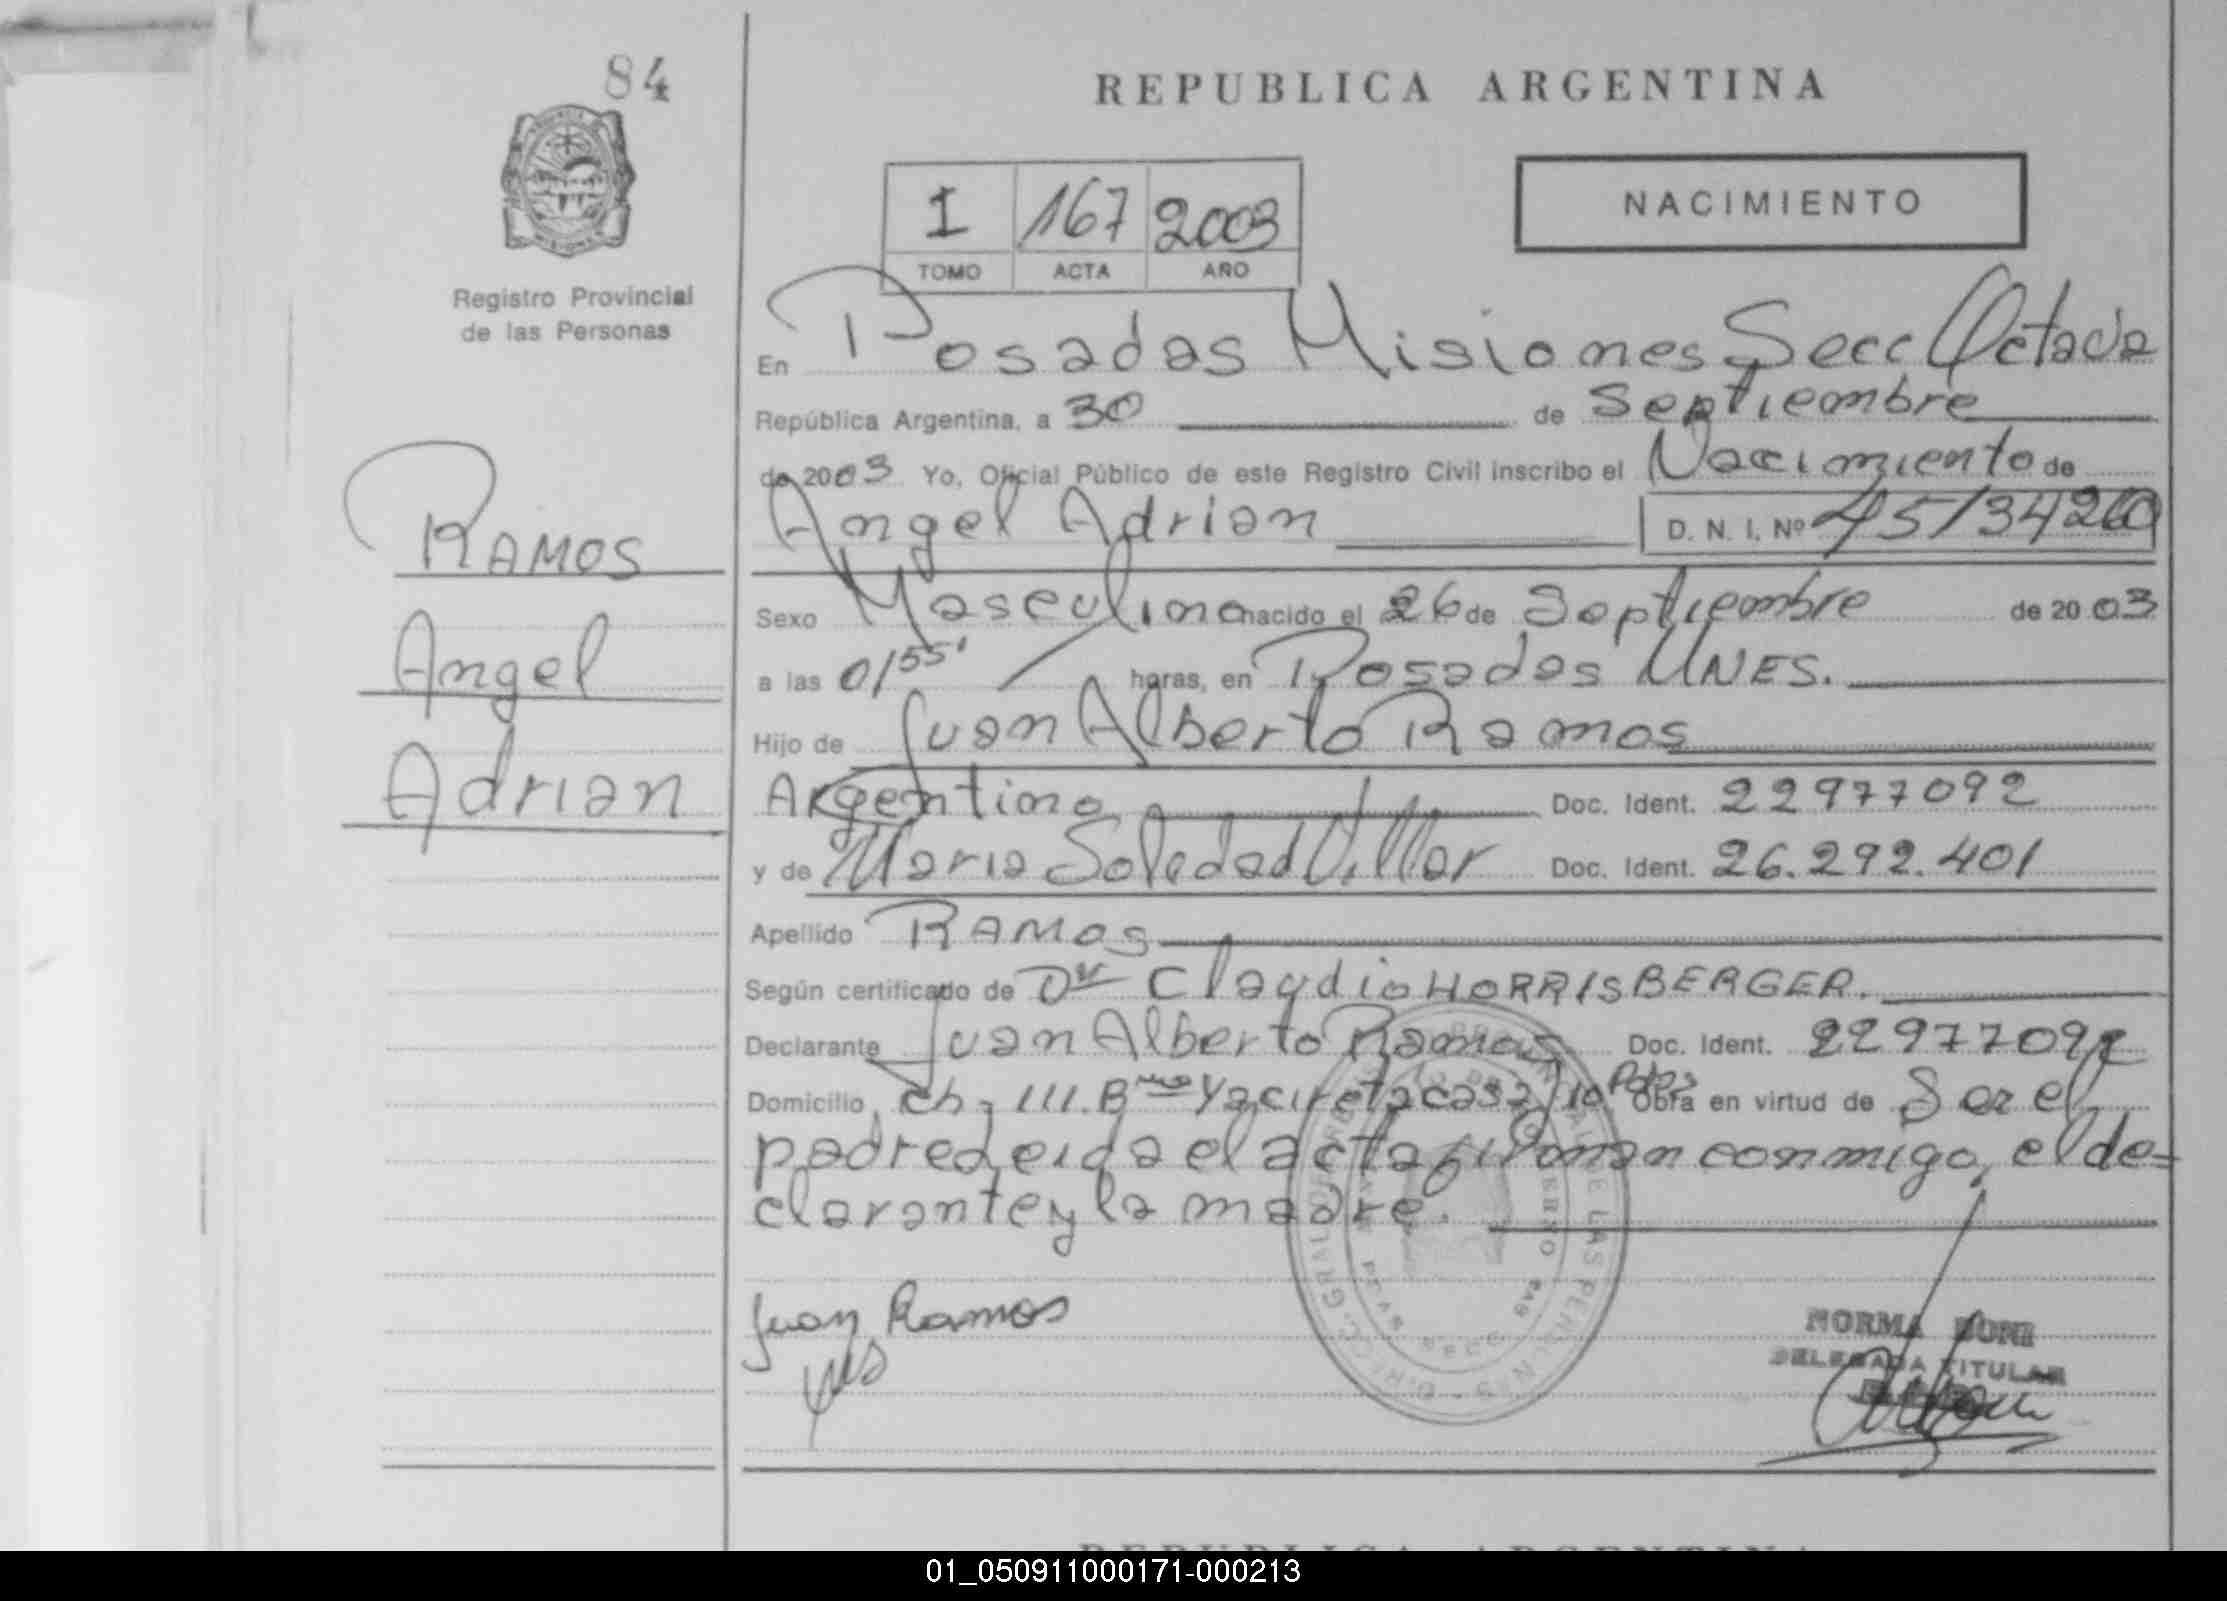 84
REPUBLICA ARGENTINA
I 167 2003
TOMO ACTA AÑO
NACIMIENTO
Registro Provincial
de las Personas
En Posadas Misiones Secc Octava
República Argentina, a 30 de Septiembre
de 2003 Yo, Oficial Público de este Registro Civil inscribo el Nacimiento de
Angel Adrian D. N. I. Nº
RAMOS
Angel
Adrian
Sexo Masculino nacido el 26 de Septiembre de 2003
a las 01 55' horas, en Posadas MNES.
Hijo de Juan Alberto Ramos
Argentino Doc. Ident. 22977092
y de Maria Soledad Villar Doc. Ident. 26.292.401
Apellido RAMOS
Según certificado de Dr Claudio HORRISBERGER.
Declarante Juan Alberto Ramos Doc. Ident. 22977092
Domicilio Ch - 111. B Yacireta casa 10 Pdas Obra en virtud de Ser el
padre Leida el acta firman conmigo, el de=
clarante y la madre.
Juan Ramos
NORMA
DELEGADA TITULAR
01_050911000171-000213